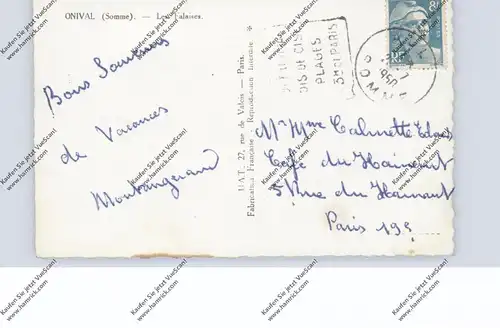 ONIVAL (Somme). — Les Falaises.
Bons Souvenirs
de Vacances
I.I.A.T., 27, rue de Valois — Paris.
Fabrication Française — Reproduction Interdite
PLAGES
3H DE PARIS
Mr Mme Calmette
Café du Hainaut
5 Rue du Hainaut
Paris 19e
Kaufen Sie jetzt VueScan!
www.hamrick.com